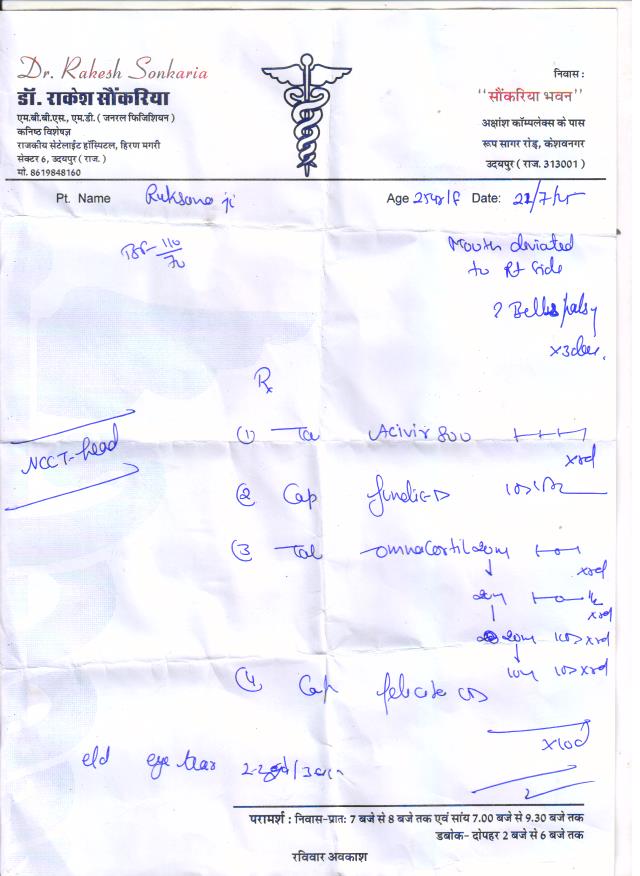 Dr. Rakesh Sonkaria
डॉ. राकेश सौंकरिया
एम.बी.बी.एस., एम.डी. ( जनरल फिजिशियन )
कनिष्ठ विशेषज्ञ
राजकीय सेटेलाईट हॉस्पिटल, हिरण मगरी
सेक्टर 6, उदयपुर ( राज. )
मो. 8619848160
निवास :
"सौंकरिया भवन"
अक्षांश कॉम्पलेक्स के पास
रूप सागर रोड़, केशवनगर
उदयपुर ( राज. 313001 )
Pt. Name Ruksana ji Age 25yr/f Date:
BP- 110/70
Mouth deviated
to Rt side
? Bells palsy
Rx
NCCT-head
(1) Acivir 800
(2) Cap
(3) Omnacortil 20m
20m
20m
10m
(4) Cap
x10d
eld eye tear
परामर्श : निवास-प्रातः 7 बजे से 8 बजे तक एवं सांय 7.00 बजे से 9.30 बजे तक
डबांक- दोपहर 2 बजे से 6 बजे तक
रविवार अवकाश